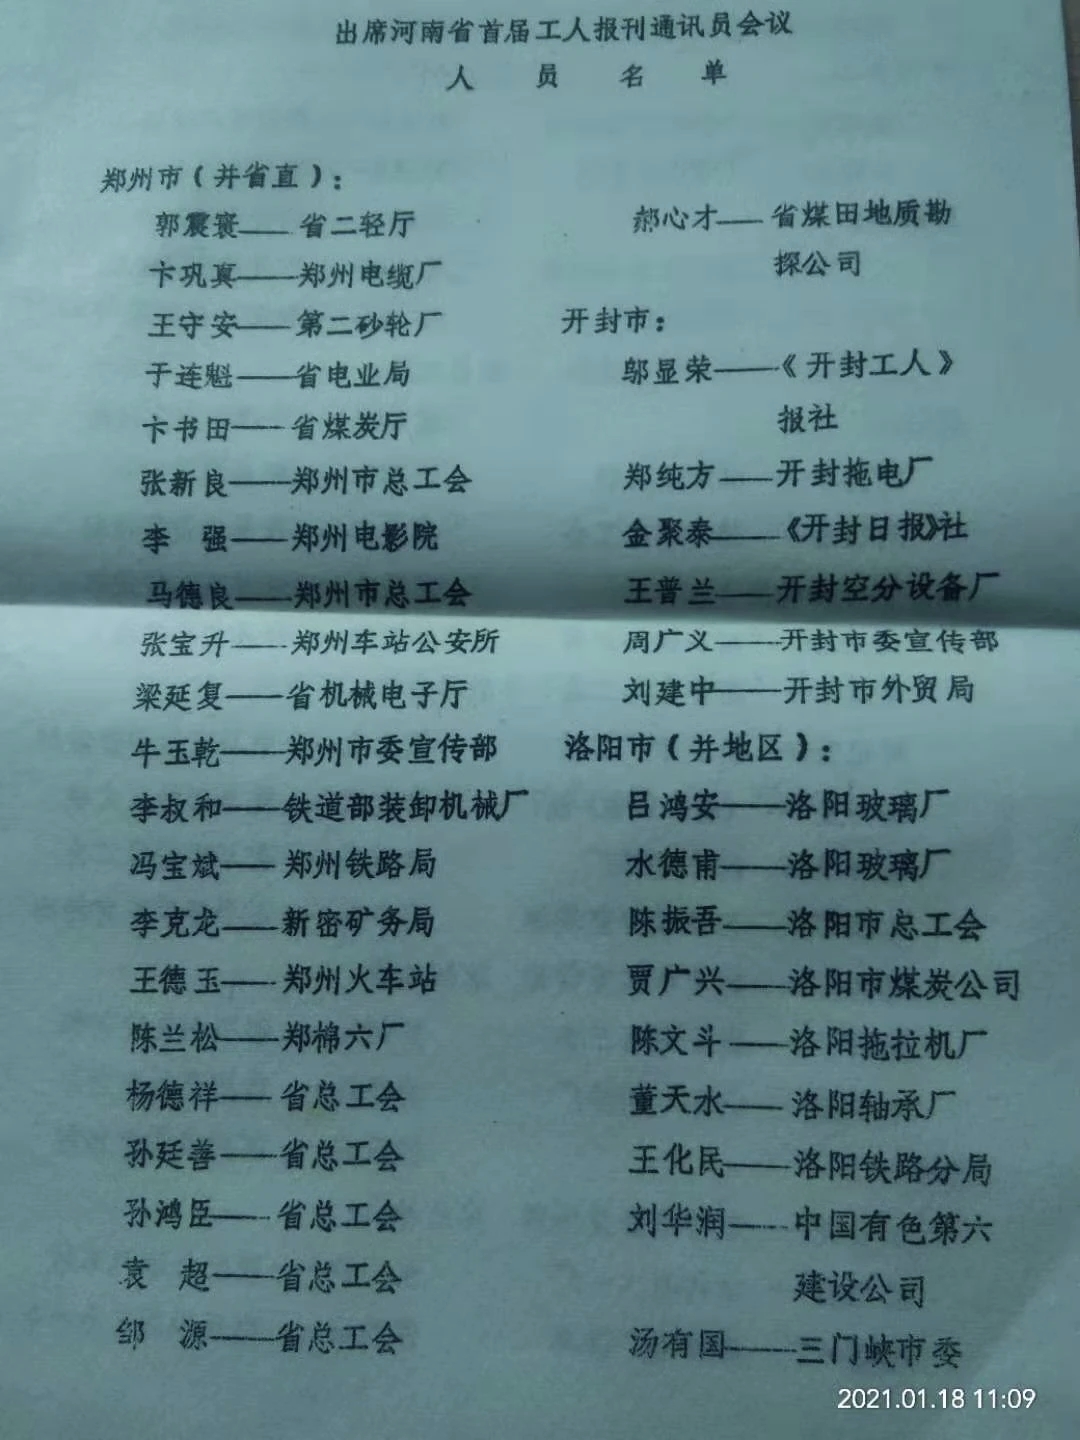 出席河南省首届工人报刊通讯员会议
人员名单
郑州市（并省直）：
郭震寰——省二轻厅
卞巩真——郑州电缆厂
王守安——第二砂轮厂
于连魁——省电业局
卞书田——省煤炭厅
张新良——郑州市总工会
李强——郑州电影院
马德良——郑州市总工会
张宝升——郑州车站公安所
梁延复——省机械电子厅
牛玉乾——郑州市委宣传部
李叔和——铁道部装卸机械厂
冯宝斌——郑州铁路局
李克龙——新密矿务局
王德玉——郑州火车站
陈兰松——郑棉六厂
杨德祥——省总工会
孙廷善——省总工会
孙鸿臣——省总工会
袁超——省总工会
邹源——省总工会
郝心才——省煤田地质勘
探公司
开封市：
邬显荣——《开封工人》
报社
郑纯方——开封拖电厂
金聚泰——《开封日报》社
王普兰——开封空分设备厂
周广义——开封市委宣传部
刘建中——开封市外贸局
洛阳市（并地区）：
吕鸿安——洛阳玻璃厂
水德甫——洛阳玻璃厂
陈振吾——洛阳市总工会
贾广兴——洛阳市煤炭公司
陈文斗——洛阳拖拉机厂
董天水——洛阳轴承厂
王化民——洛阳铁路分局
刘华润——中国有色第六
建设公司
汤有国——三门峡市委
2021.01.18 11:09